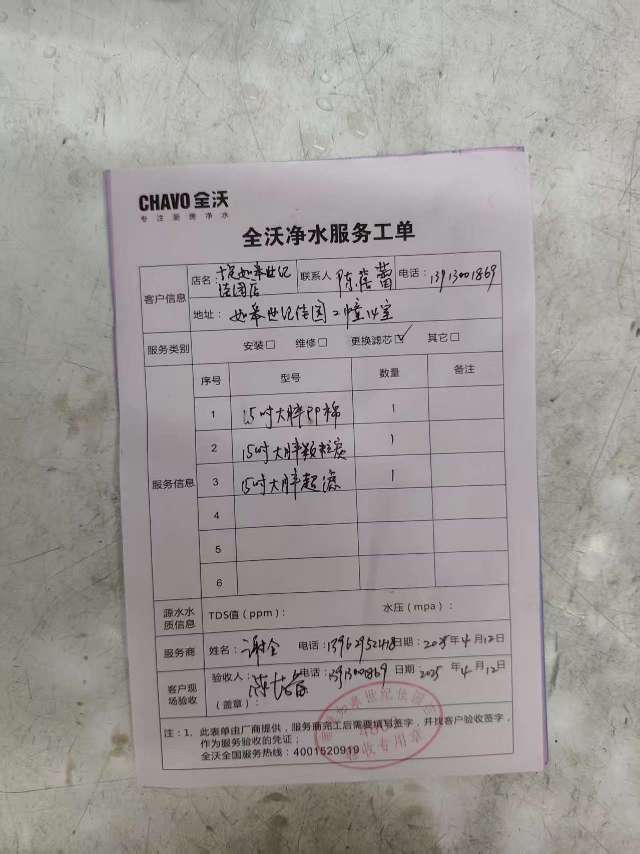 CHAVO 全沃
专注厨房净水
全沃净水服务工单
客户信息
店名: 如皋世纪佳园店
联系人
电话: 13913001869
地址: 如皋世纪佳园2幢14室
服务类别 安装□ 维修□ 更换滤芯☑ 其它□
服务信息
序号 型号 数量 备注
1 15吋大胖PP棉 1
2 15吋大胖颗粒炭 1
3 15吋大胖超滤 1
4
5
6
源水水质信息 TDS值(ppm): 水压(mpa):
服务商 姓名: 谢全 电话: 日期: 2025年4月12日
客户现场验收
验收人: 电话: 日期: 2025年4月12日
(盖章):
如皋世纪佳园
验收专用章
注:1、此表单由厂商提供,服务商完工后需要填写签字,并找客户验收签字,
作为服务验收的凭证;
全沃全国服务热线:4001520919